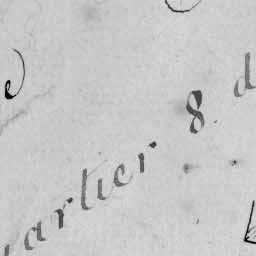 artier 8 d